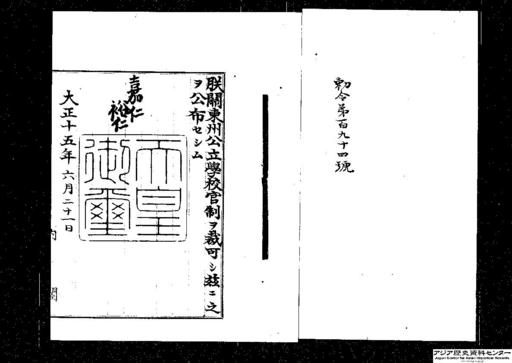 勅令第百九十四號
朕關東州公立學校官制ヲ裁可シ茲ニ之
ヲ公布セシム
嘉仁
裕仁
天皇
御璽
大正十五年六月二十一日
内閣
アジア歴史資料センター
Japan Center for Asian Historical Records